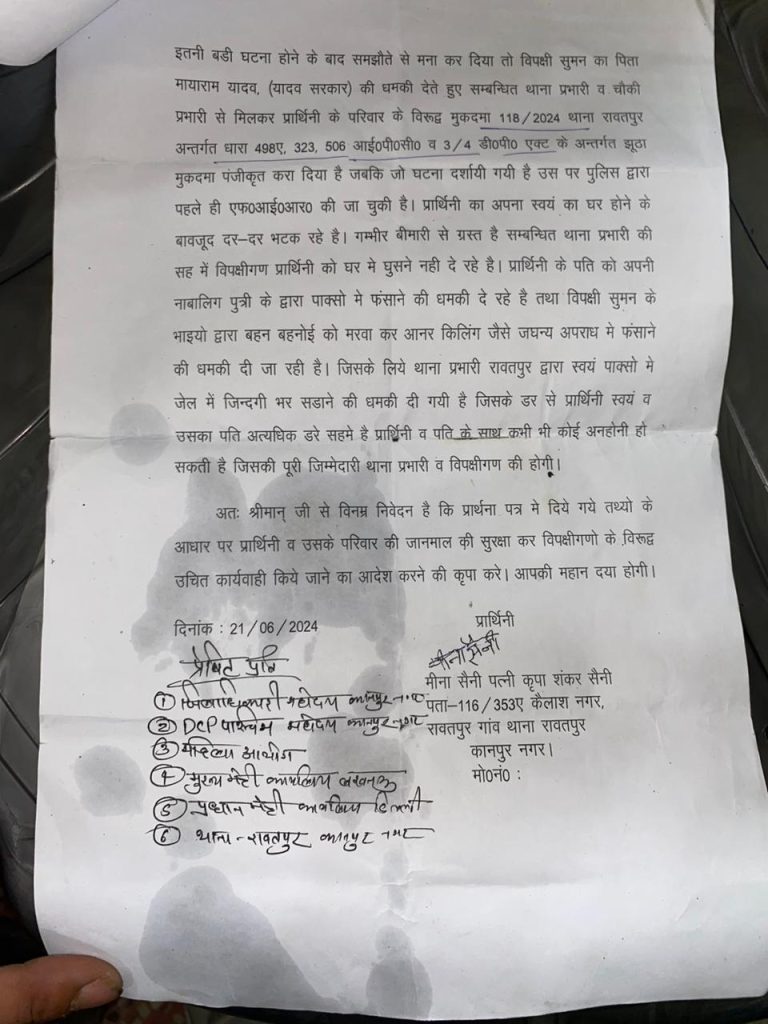 इतनी बडी घटना होने के बाद समझौते से मना कर दिया तो विपक्षी सुमन का पिता
मायाराम यादव, (यादव सरकार) की धमकी देते हुए सम्बन्धित थाना प्रभारी व चौकी
प्रभारी से मिलकर प्रार्थिनी के परिवार के विरूद्व मुकदमा 118/2024 थाना रावतपुर
अन्तर्गत धारा 498ए, 323, 506 आई0पी0सी0 व 3/4 डी0पी0 एक्ट के अन्तर्गत झूठा
मुकदमा पंजीकृत करा दिया है जबकि जो घटना दर्शायी गयी है उस पर पुलिस द्वारा
पहले ही एफ0आई0आर0 की जा चुकी है। प्रार्थिनी का अपना स्वयं का घर होने के
बावजूद दर–दर भटक रहे है। गम्भीर बीमारी से ग्रस्त है सम्बन्धित थाना प्रभारी की
सह में विपक्षीगण प्रार्थिनी को घर मे घुसने नही दे रहे है। प्रार्थिनी के पति को अपनी
नाबालिग पुत्री के द्वारा पाक्सो मे फंसाने की धमकी दे रहे है तथा विपक्षी सुमन के
भाइयो द्वारा बहन बहनोई को मरवा कर आनर किलिंग जैसे जघन्य अपराध मे फंसाने
की धमकी दी जा रही है। जिसके लिये थाना प्रभारी रावतपुर द्वारा स्वयं पाक्सो मे
जेल में जिन्दगी भर सडाने की धमकी दी गयी है जिसके डर से प्रार्थिनी स्वयं व
उसका पति अत्यधिक डरे सहमे है प्रार्थिनी व पति के साथ कभी भी कोई अनहोनी हो
सकती है जिसकी पूरी जिम्मेदारी थाना प्रभारी व विपक्षीगण की होगी।
अतः श्रीमान् जी से विनम्र निवेदन है कि प्रार्थना पत्र मे दिये गये तथ्यो के
आधार पर प्रार्थिनी व उसके परिवार की जानमाल की सुरक्षा कर विपक्षीगणो के विरूद्व
उचित कार्यवाही किये जाने का आदेश करने की कृपा करे। आपकी महान दया होगी।
दिनांक : 21/06/2024
प्रार्थिनी
मीना सैनी
मीना सैनी पत्नी कृपा शंकर सैनी
पता–116/353ए कैलाश नगर,
रावतपुर गांव थाना रावतपुर
कानपुर नगर।
मो0नं0 :
प्रेषित प्रति
① जिलाधिकारी महोदय कानपुर नगर
② DCP पश्चिम महोदय कानपुर नगर
③ महिला आयोग
④ मुख्य मंत्री कार्यालय लखनऊ
⑤ प्रधान मंत्री कार्यालय दिल्ली
⑥ थाना - रावतपुर कानपुर नगर